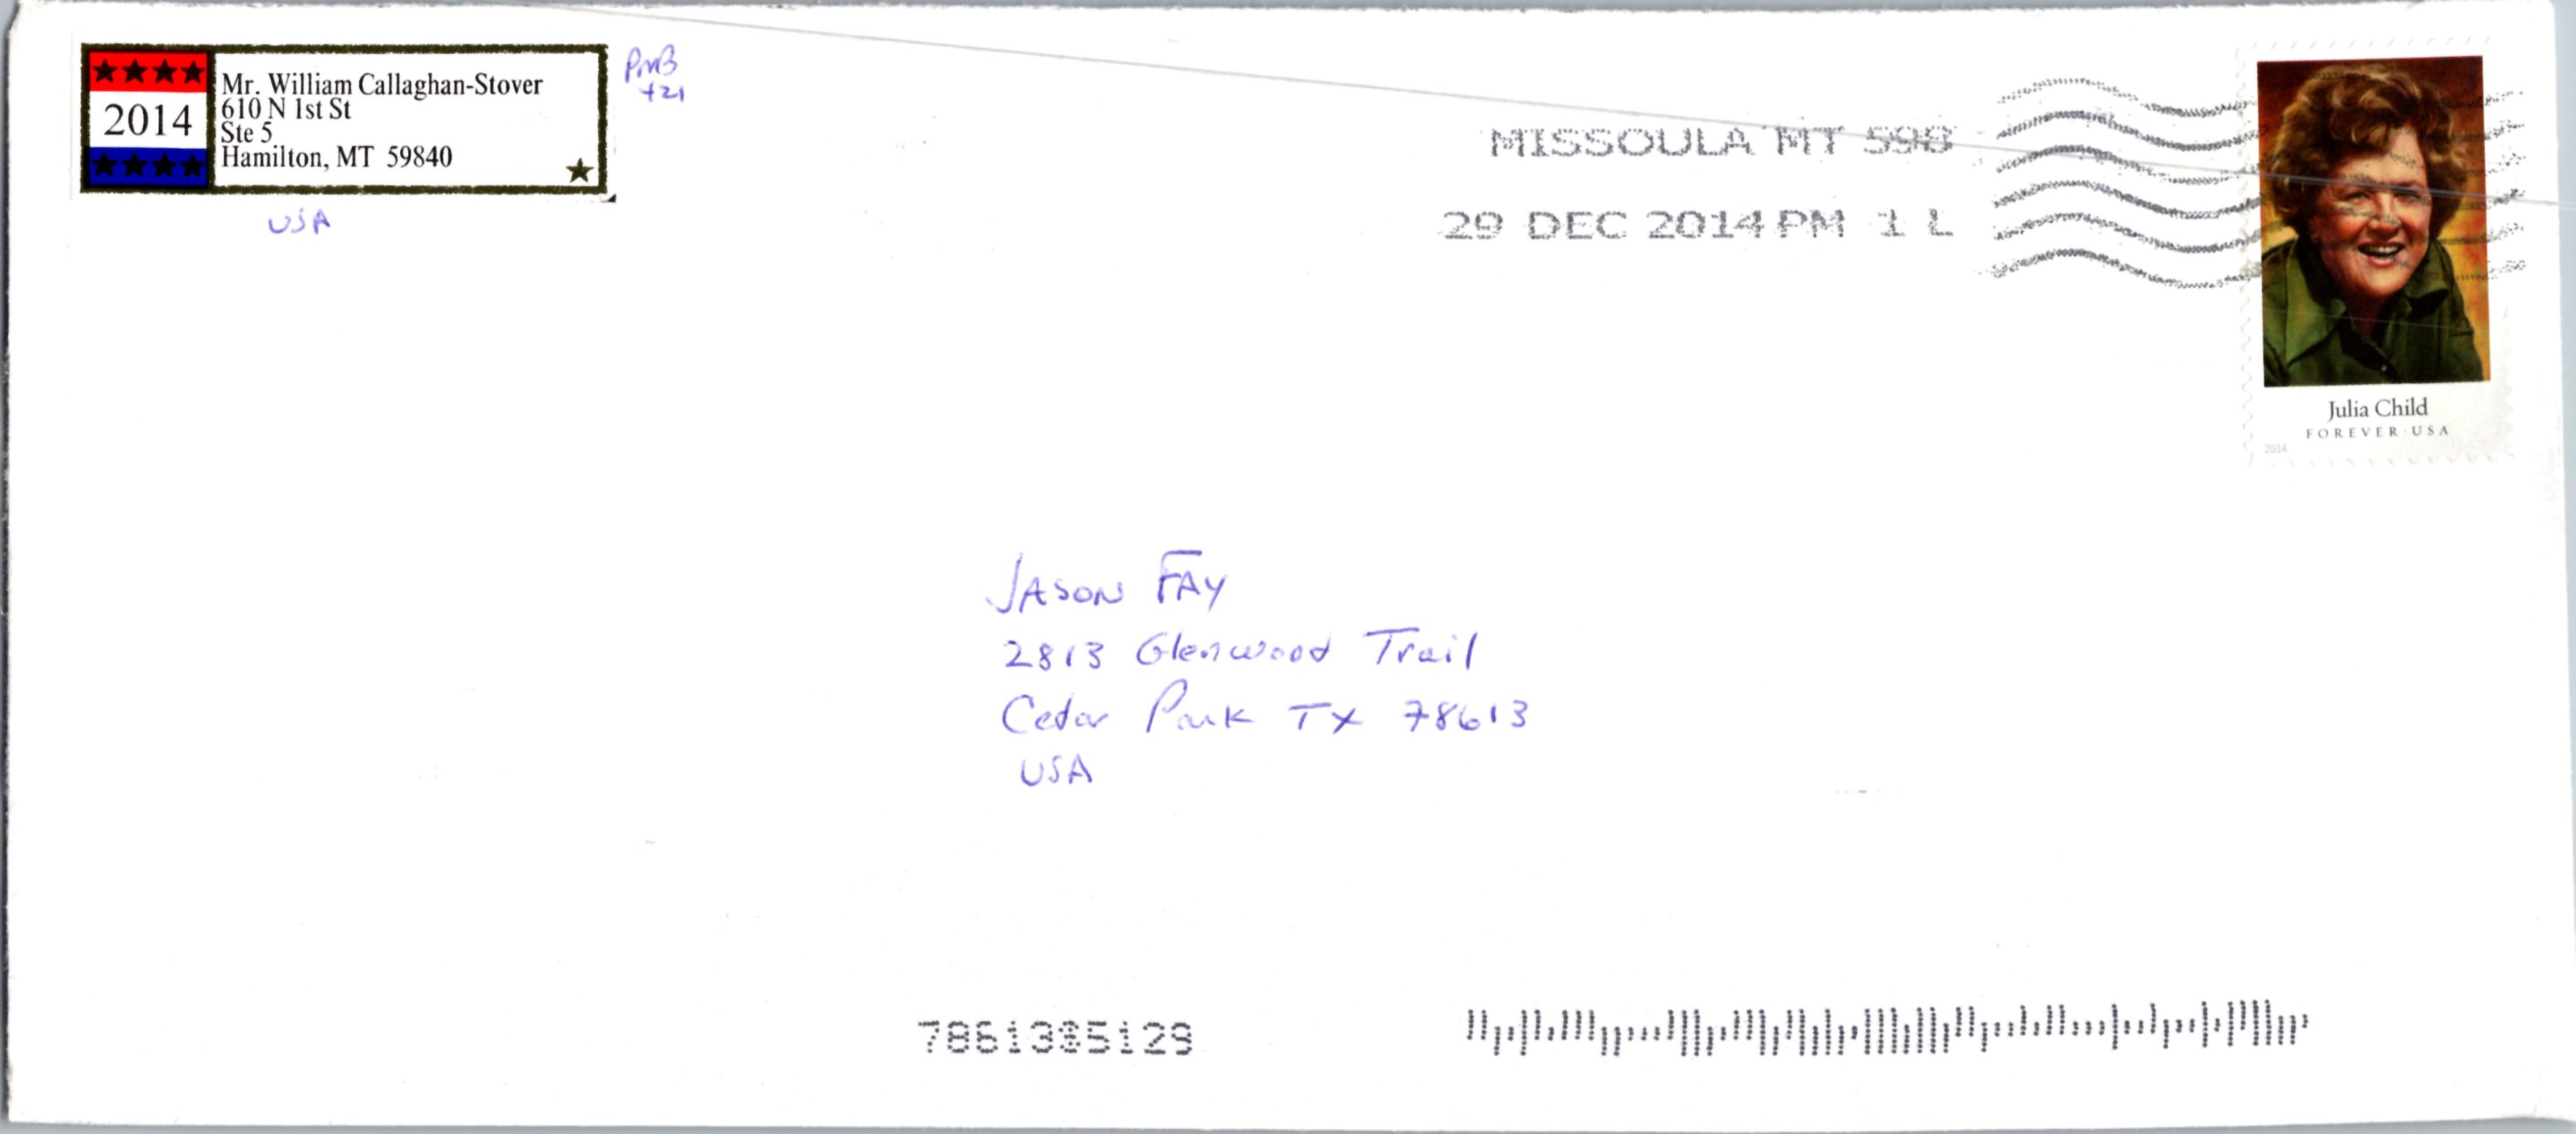 2014
Mr. William Callaghan-Stover
610 N 1st St
Ste 5
Hamilton, MT 59840
PMB
421
USA
MISSOULA MT 598
29 DEC 2014 PM 1 L
Julia Child
FOREVER USA
2014
JASON FAY
2813 Glenwood Trail
Cedar Park TX 78613
USA